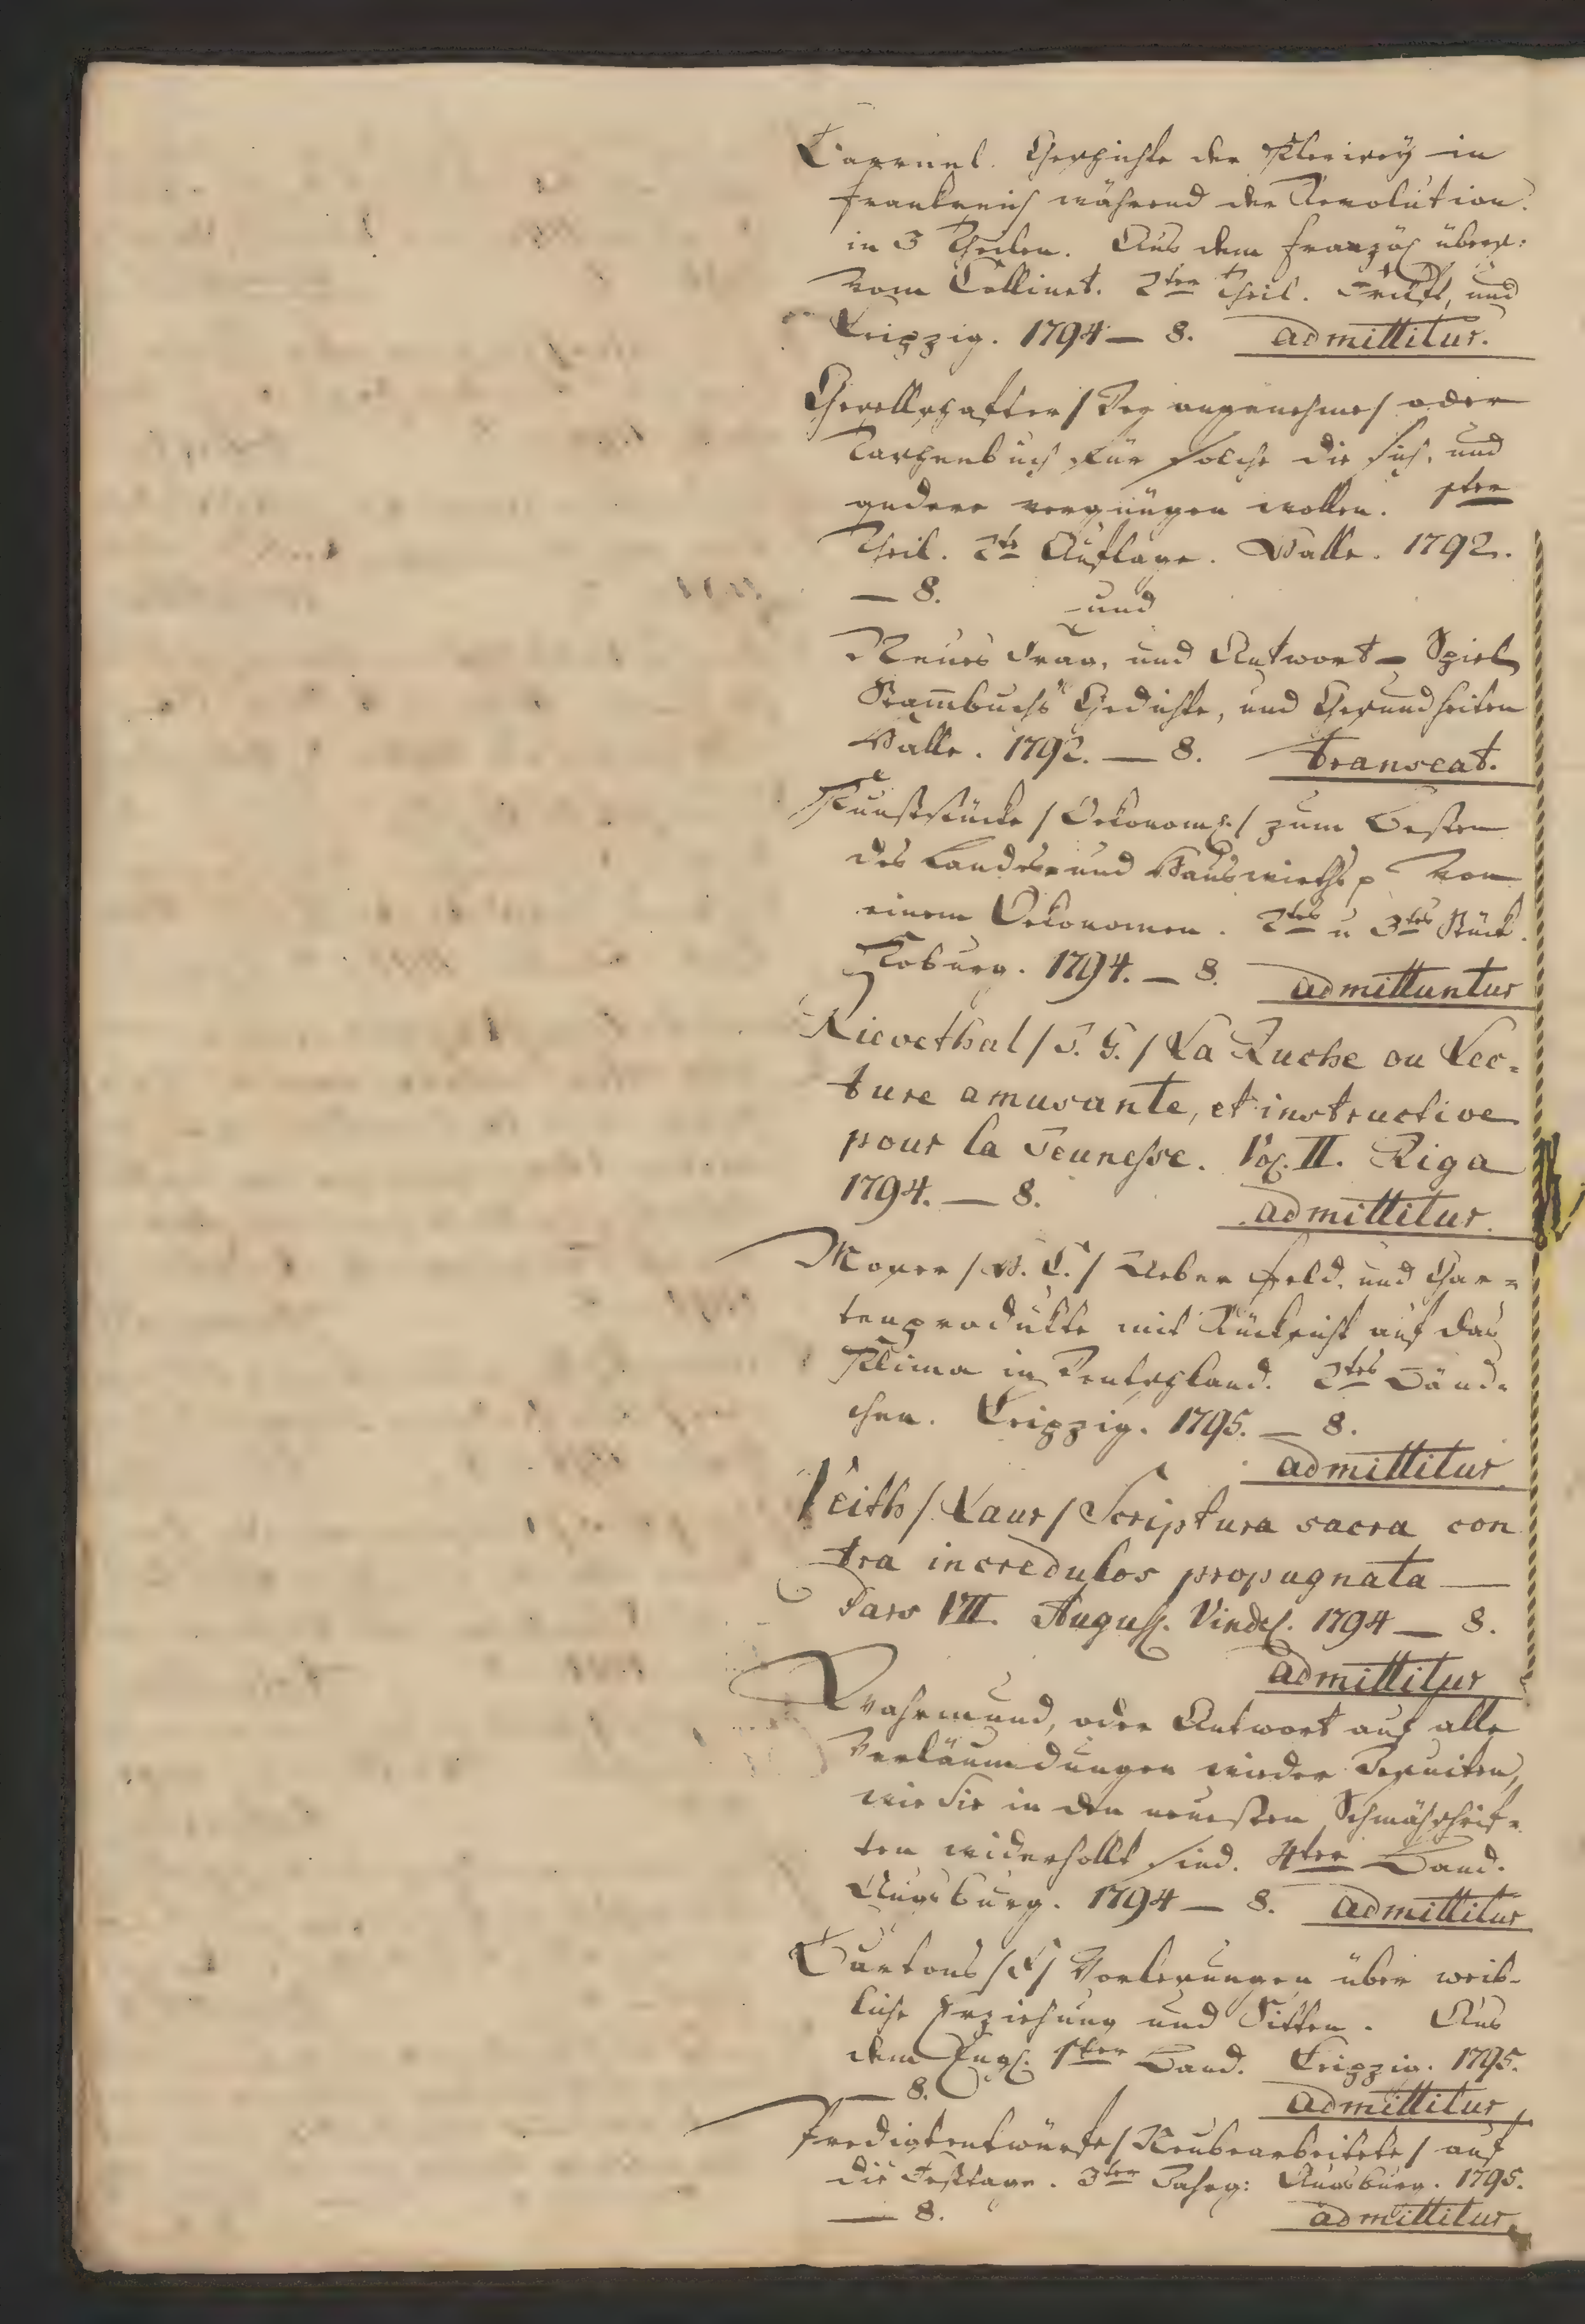 Barruel. Geschichte der Klerisey in
Frankreich während der Revolution.
in 3 Theilen. Aus dem Französ. übers:
vom Collinet. 2ter Theil. Frkft, und
Leipzig. 1794 — 8. admittitur.
Gesellschafter / Der angenehme / oder
Taschenbuch für solche die sich, und
andere vergnügen wollen. 1ter
Theil. 2te Auflage. Halle. 1792.
— 8. und
Neues Frag, und Antwort - Spiel
Stam̅buchs Gedichte, und Gesundheiten
Halle. 1792. — 8. transeat.
Kunststücke / Oekonom. / zum Besten
des Landes und Hauswirths p von
einem Oekonomen. 2tes u 3tes Stück.
Koburg. 1794. — 8. admittuntur
Rievethal / J. G. / La Ruche ou Lec-
ture amusante, et instructive
pour la Jeunesse. Vol. II. Riga
1794. — 8. admittitur.
Moser / H. C. / Ueber Feld- und Gar-
tenprodukte mit Rücksicht auf das
Klima in Deutschland. 2tes Bänd-
chen. Leipzig. 1795. — 8.
admittitur
Veith / Laur / Scriptura sacra con
tra incredulos propugnata —
Pars VII. August. Vindel. 1794 — 8.
admittitur
Wahrmund, oder Antwort auf alle
Verläumdungen wieder Jesuiten,
wie sie in den neuesten Schmähschrif-
ten widerhollt sind. 4ter Band.
Augsburg. 1794 — 8. admittitur
Burtons / J / Vorlesungen über weib-
liche Erziehung und Sitten. Aus
dem Engl. 1ter Band. Leipzig. 1795.
— 8. admittitur
Predigtentwürfe / Neubearbeitete / auf
die Festtage. 3ter Jahrg: Augsburg. 1795.
— 8. admittitur